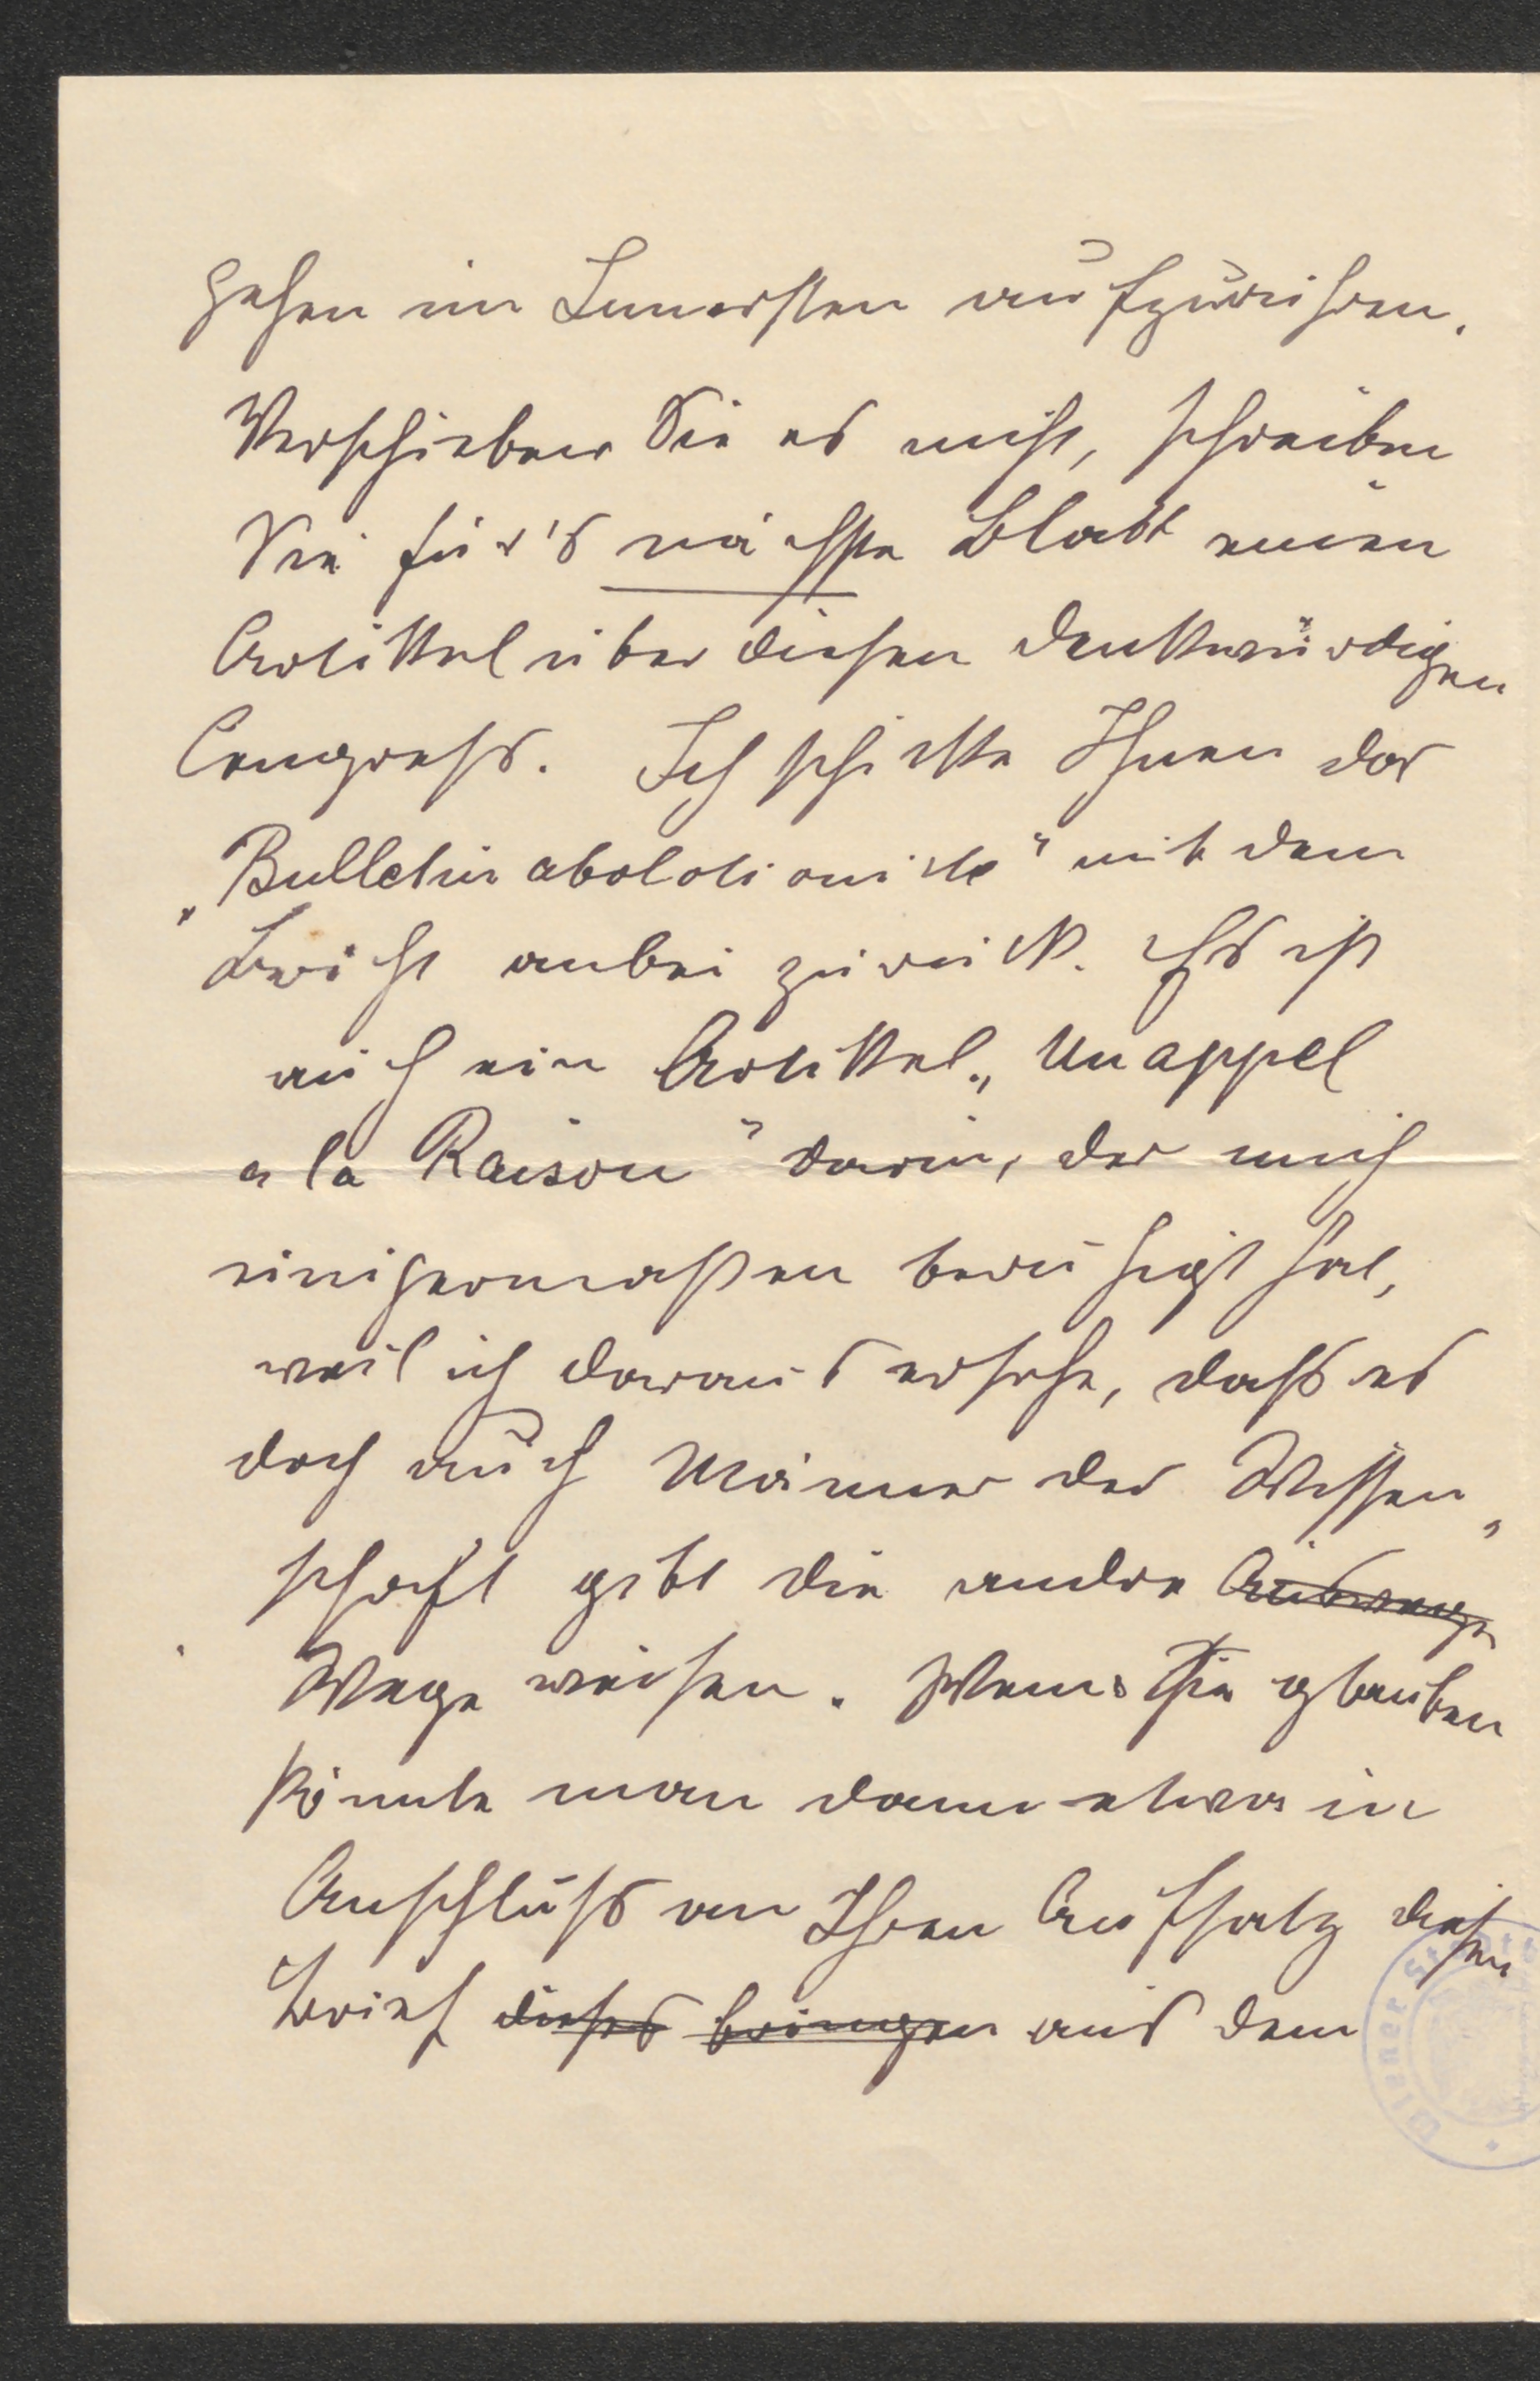 gehen im Innersten aufzurühren.
Verschieben Sie es nicht, schreiben
Sie für's nächste Blatt einen
Artikel über diesen denkwürdigen
Congress. Ich schicke Ihnen das
„Bulletin abolotioniste" mit dem
Bericht anbei zurück. Es ist
auch ein Artikel „Un appel
a la Raison" darin, der mich
einigermaßen beruhigt hat,
weil ich daraus ersehe, daß es
doch auch Männer der Wissen„
schaft gibt die andre Auswege
Wege weisen. Wenn Sie glauben
könnte man dann etwa in
Anschluß an Ihren Aufsatz diesen
Brief dieses bringen aus dem
Wiener Städt